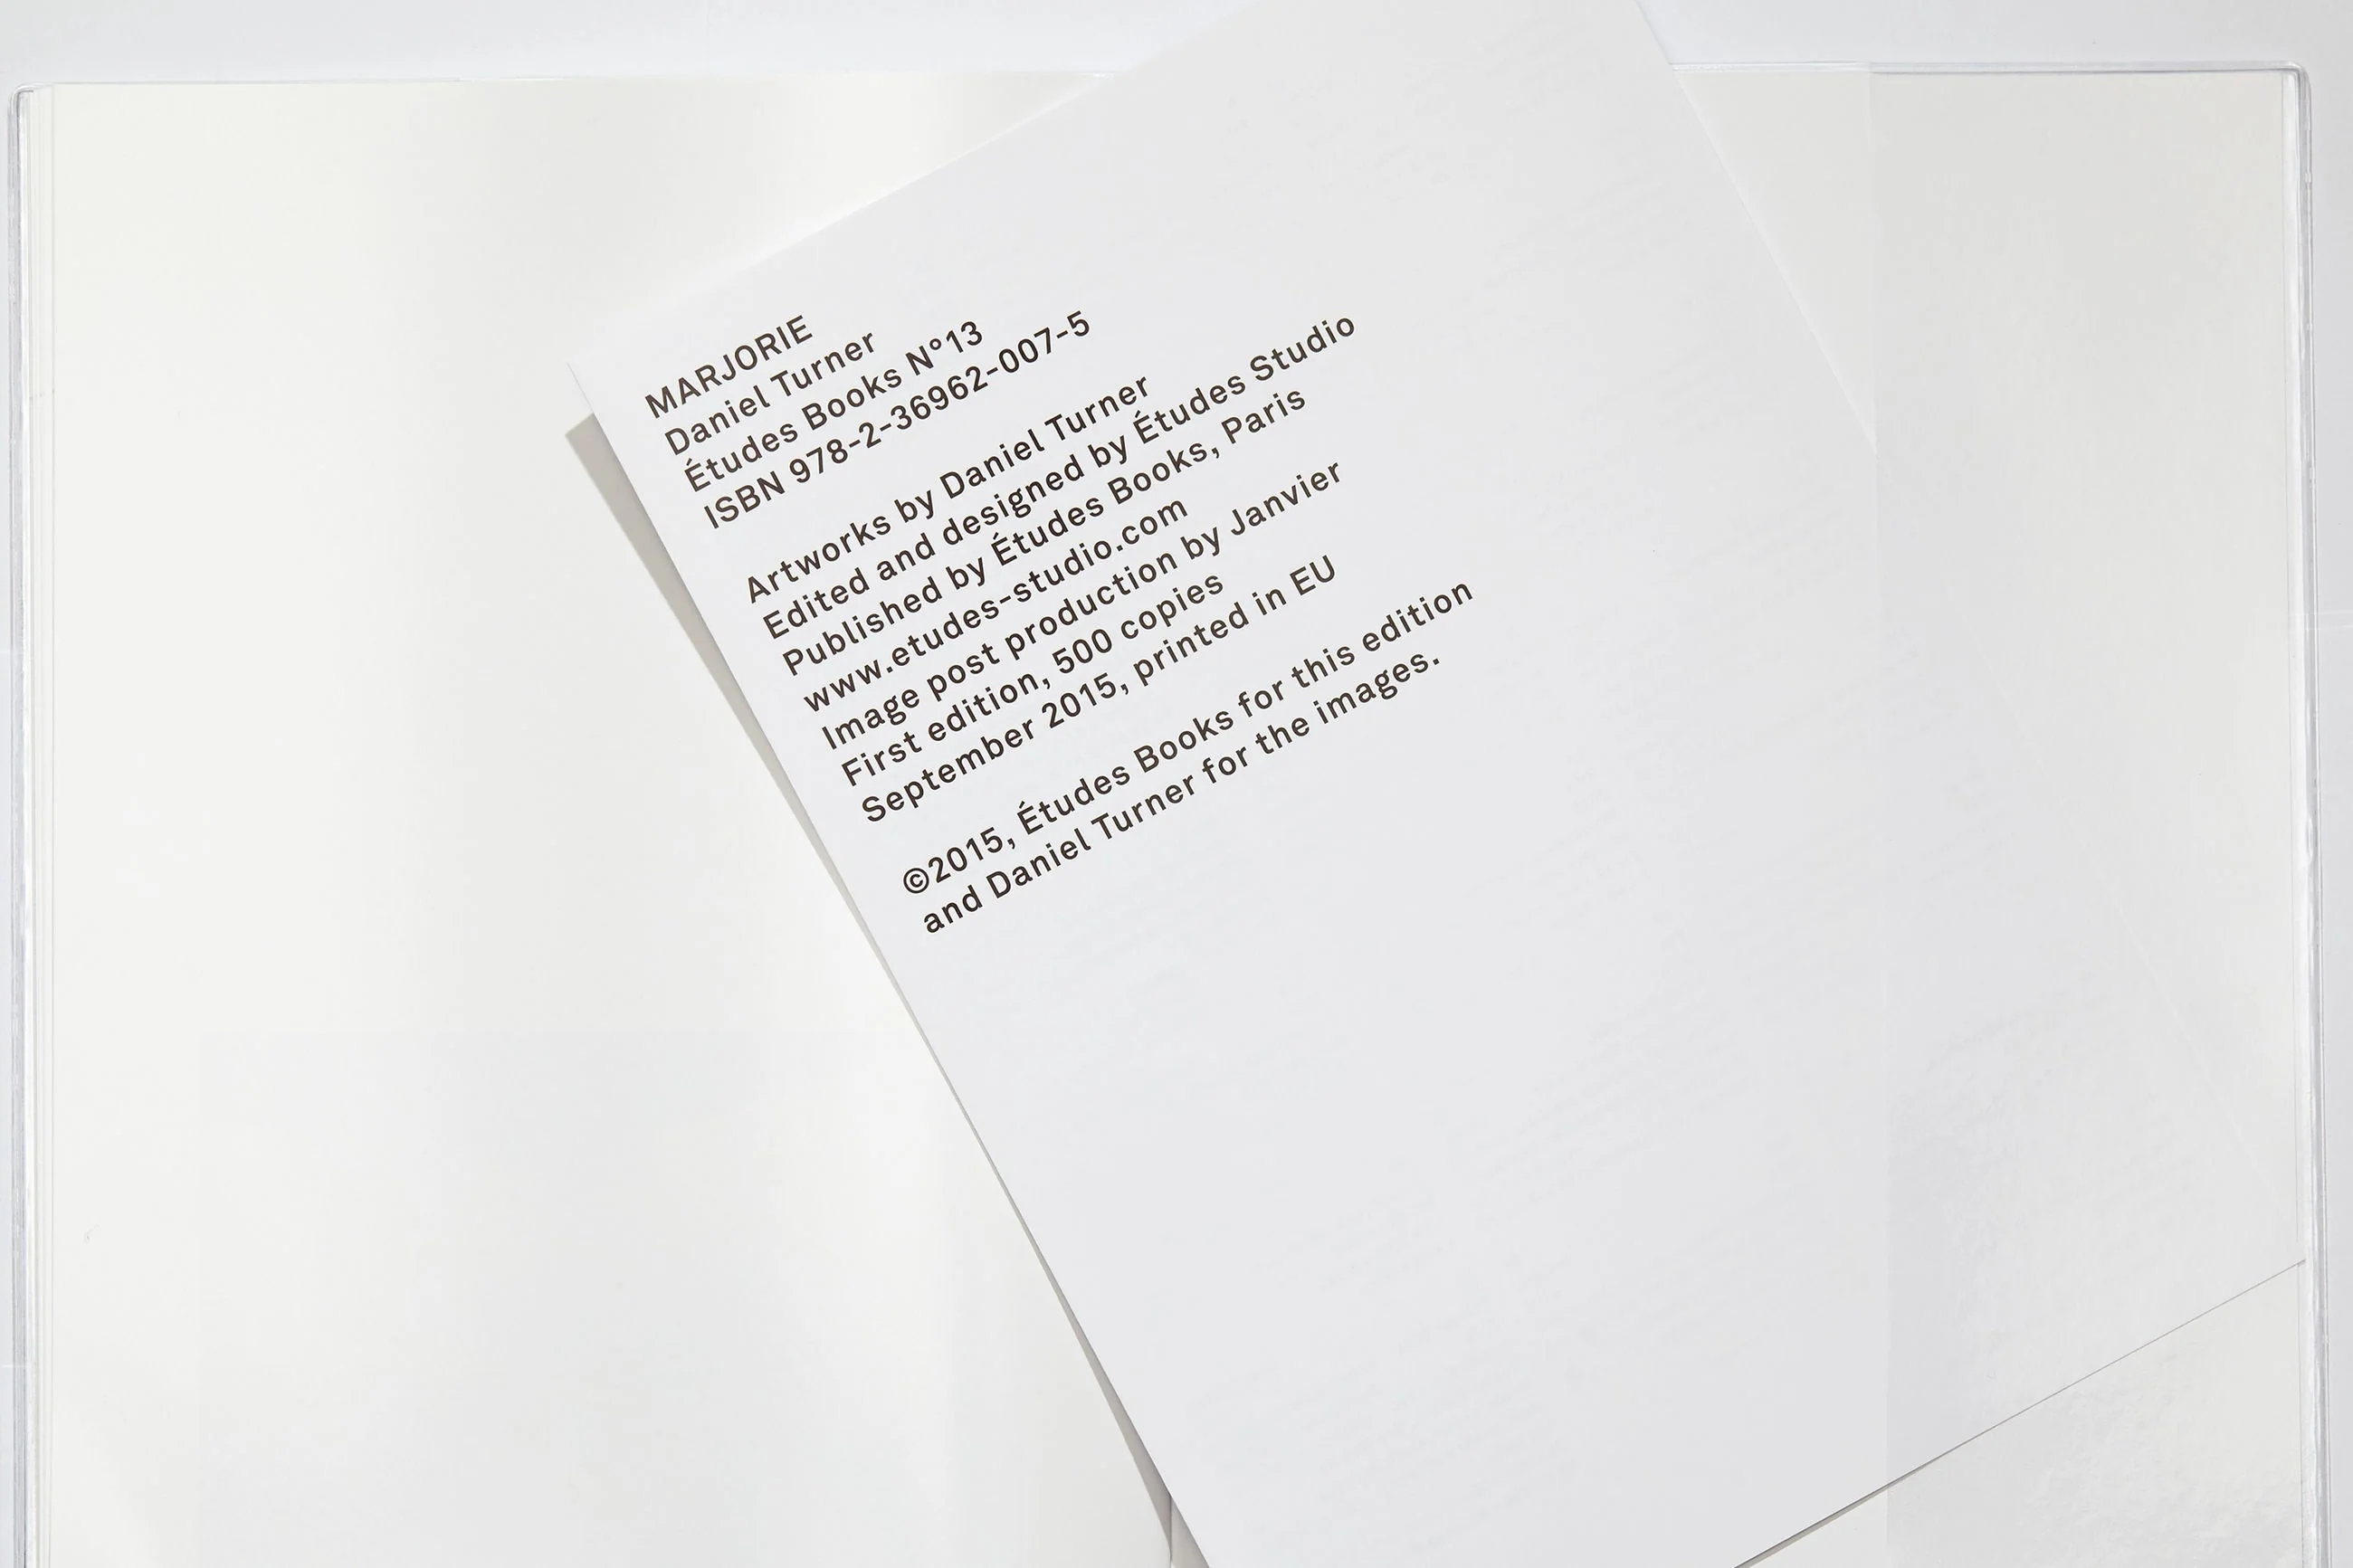 MARJORIE
Daniel Turner
Études Books N°13
ISBN 978-2-36962-007-5
Artworks by Daniel Turner
Edited and designed by Études Studio
Published by Études Books, Paris
www.etudes-studio.com
Image post production by Janvier
First edition, 500 copies
September 2015, printed in EU
©2015, Études Books for this edition
and Daniel Turner for the images.